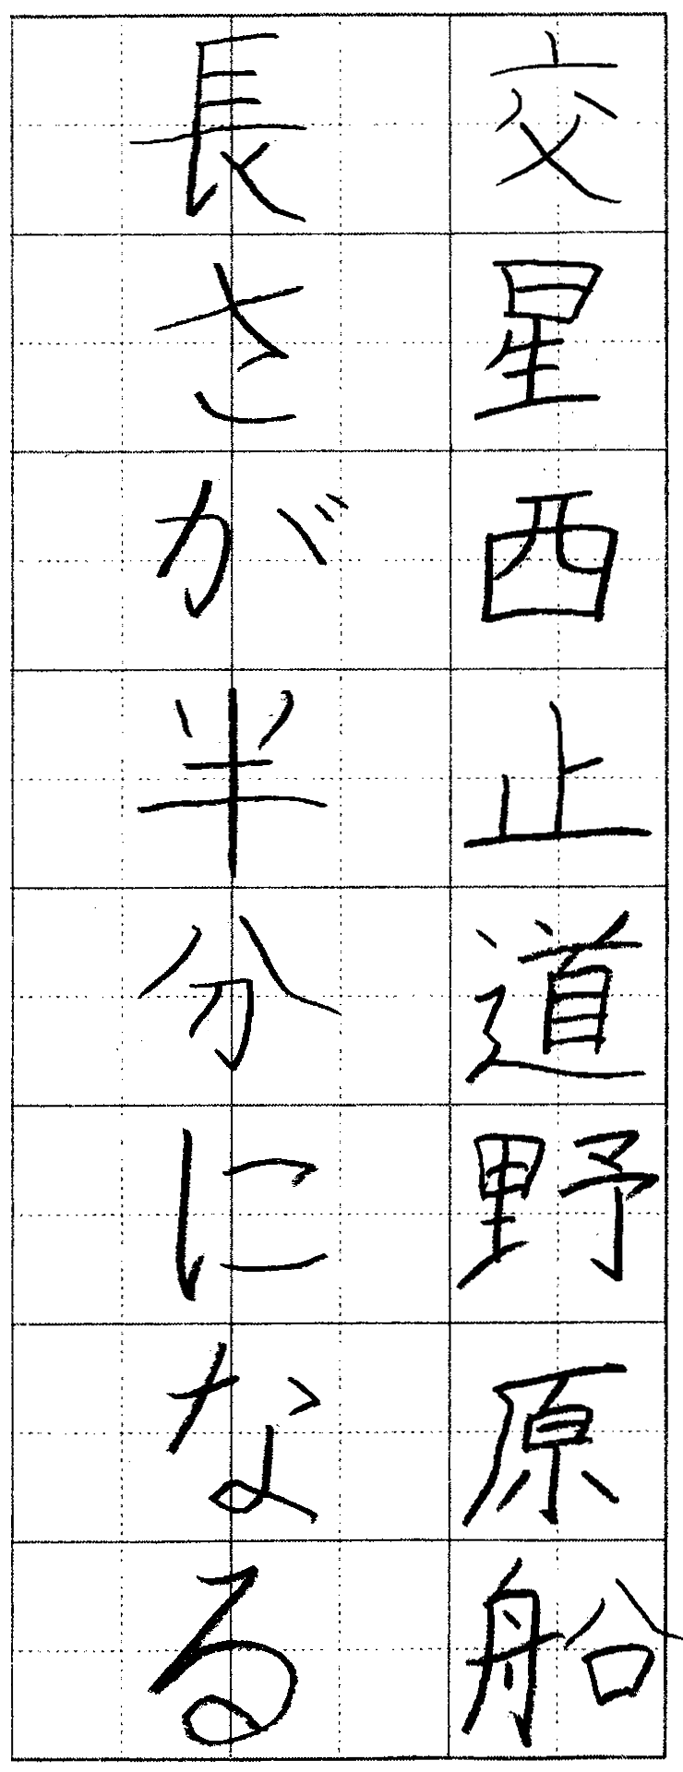 交星西止道野原船
長さが半分になる